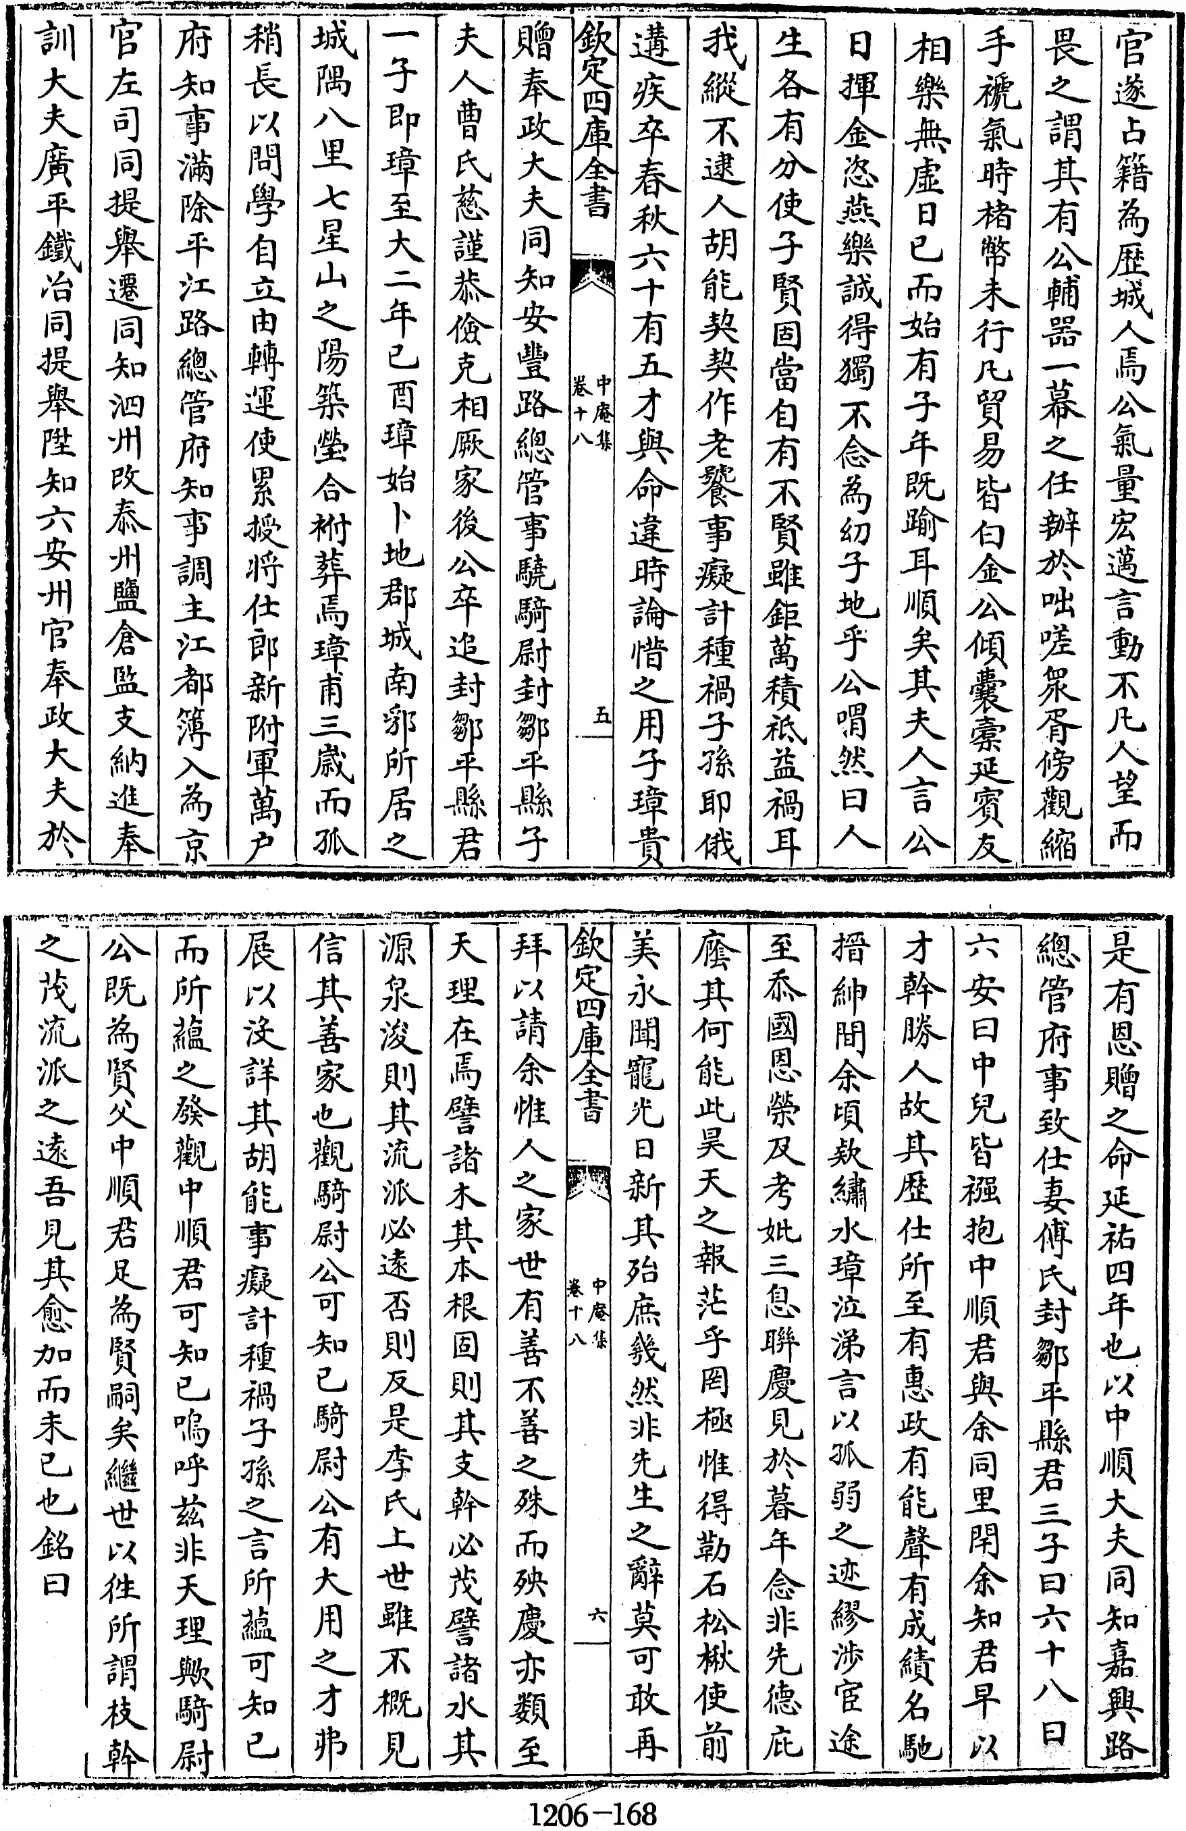 官遂占籍為歴城人焉公氣量宏邁言動不凡人望而
畏之謂其有公輔器一幕之任辦於咄嗟衆胥傍觀縮
手褫氣時楮幣未行凡貿易皆白金公傾囊橐延賓友
相樂無虚日已而始有子年既踰耳順矣其夫人言公
日揮金恣燕樂誠得獨不念為幼子地乎公喟然曰人
生各有分使子賢固當自有不賢雖鉅萬積祗益禍耳
我縱不逮人胡能契契作老饕事癡計種禍子孫耶俄
遘疾卒春秋六十有五才與命違時論惜之用子璋貴
欽定四庫全書 中庵集 卷十八 五
贈奉政大夫同知安豐路總管事驍騎尉封鄒平縣子
夫人曹氏慈謹恭儉克相厥家後公卒追封鄒平縣君
一子即璋至大二年已酉璋始卜地郡城南郛所居之
城隅八里七星山之陽築塋合祔葬焉璋甫三歲而孤
稍長以問學自立由轉運使累授將仕郎新附軍萬户
府知事滿除平江路總管府知事調主江都簿入為京
官左司同提舉遷同知泗州改泰州鹽倉監支納進奉
訓大夫廣平鐵冶同提舉陞知六安州官奉政大夫於
是有恩贈之命延祐四年也以中順大夫同知嘉興路
總管府事致仕妻傅氏封鄒平縣君三子曰六十八曰
六安曰中兒皆襁抱中順君與余同里閈余知君早以
才幹勝人故其歴仕所至有惠政有能聲有成績名馳
搢紳間余頃欵繡水璋泣涕言以孤弱之迹繆涉宦途
至忝國恩榮及考妣三息聨慶見於暮年念非先德庇
廕其何能此昊天之報茫乎罔極惟得勒石松楸使前
美永聞寵光日新其殆庶幾然非先生之辭莫可敢再
欽定四庫全書 中庵集 卷十八 六
拜以請余惟人之家世有善不善之殊而殃慶亦類至
天理在焉譬諸木其本根固則其支幹必茂譬諸水其
源泉浚則其流派必逺否則反是李氏上世雖不概見
信其善家也觀騎尉公可知已騎尉公有大用之才弗
展以没詳其胡能事癡計種禍子孫之言所蘊可知已
而所蘊之發觀中順君可知已嗚呼兹非天理歟騎尉
公既為賢父中順君足為賢嗣矣繼世以徃所謂枝幹
之茂流派之逺吾見其愈加而未已也銘曰
1206-168